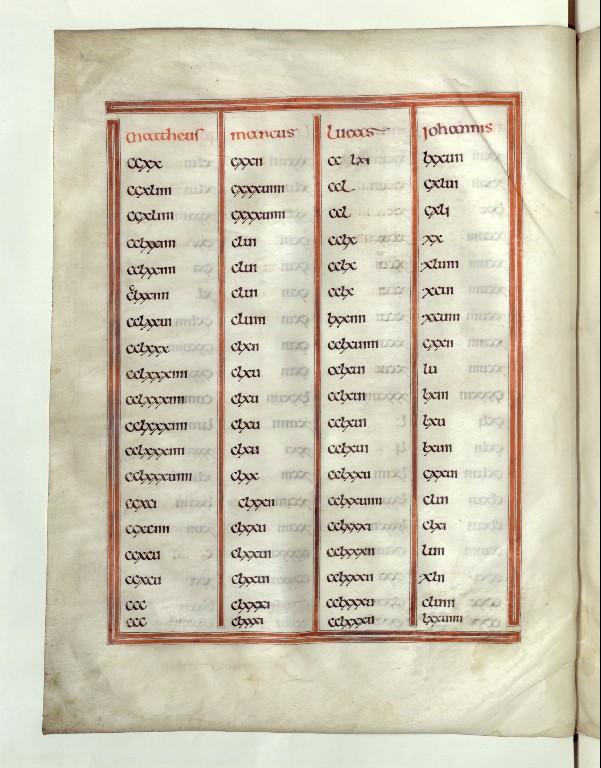 Mattheus marcus Lucas Johannis
ccxx cxxii cc lxi lxxuii
ccxliiii cxxxuiiii ccl cxlui
ccxliiii cxxxuiiii ccl cxli
cclxxiiii clui cclx xx
cclxxiiii clui cclx xluiii
cclxxiiii clui cclx xcui
cclxxui cluiii lxxiiii xcuiii
cclxxx clxii cclxuiiii cxxii
cclxxxiiii clxu cclxui lu
cclxxxiiii clxu cclxui lxiii
cclxxxiiii clxu cclxui lxu
cclxxxiiii clxu cclxui lxuii
cclxxxuiiii clxx cclxxu cxxui
ccxci clxxii cclxxuiiii clui
ccxciiii clxxu cclxxxi clxi
ccxcu clxxui cclxxxii luii
ccxcu clxxui cclxxxii xlii
ccc clxxxi cclxxxu cluiii
ccc clxxxi cclxxxu lxxuiiii